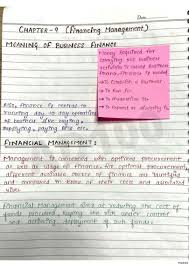 Date
CHAPTER-9 (Financing Management)
MEANING OF BUSINESS FINANCE
Money required for
carrying out business
activities is called business
finance. Finance is needed
→ To Establish a business
→ To Run it
→ To modernise it
→ To expand or diversify it
Also, finance is needed to
day to day operations
of business like buying,
supplying, paying bills etc.
FINANCIAL MANAGEMENT:
Management is concerned with optimal procurement
as well as usage of finance. For optimal procurement,
different available sources of finance are identified
and compared in terms of their costs and associated
risks.
Financial Management aims at reducing the cost of
funds procured, keeping the risk under control
and deploying of such funds.